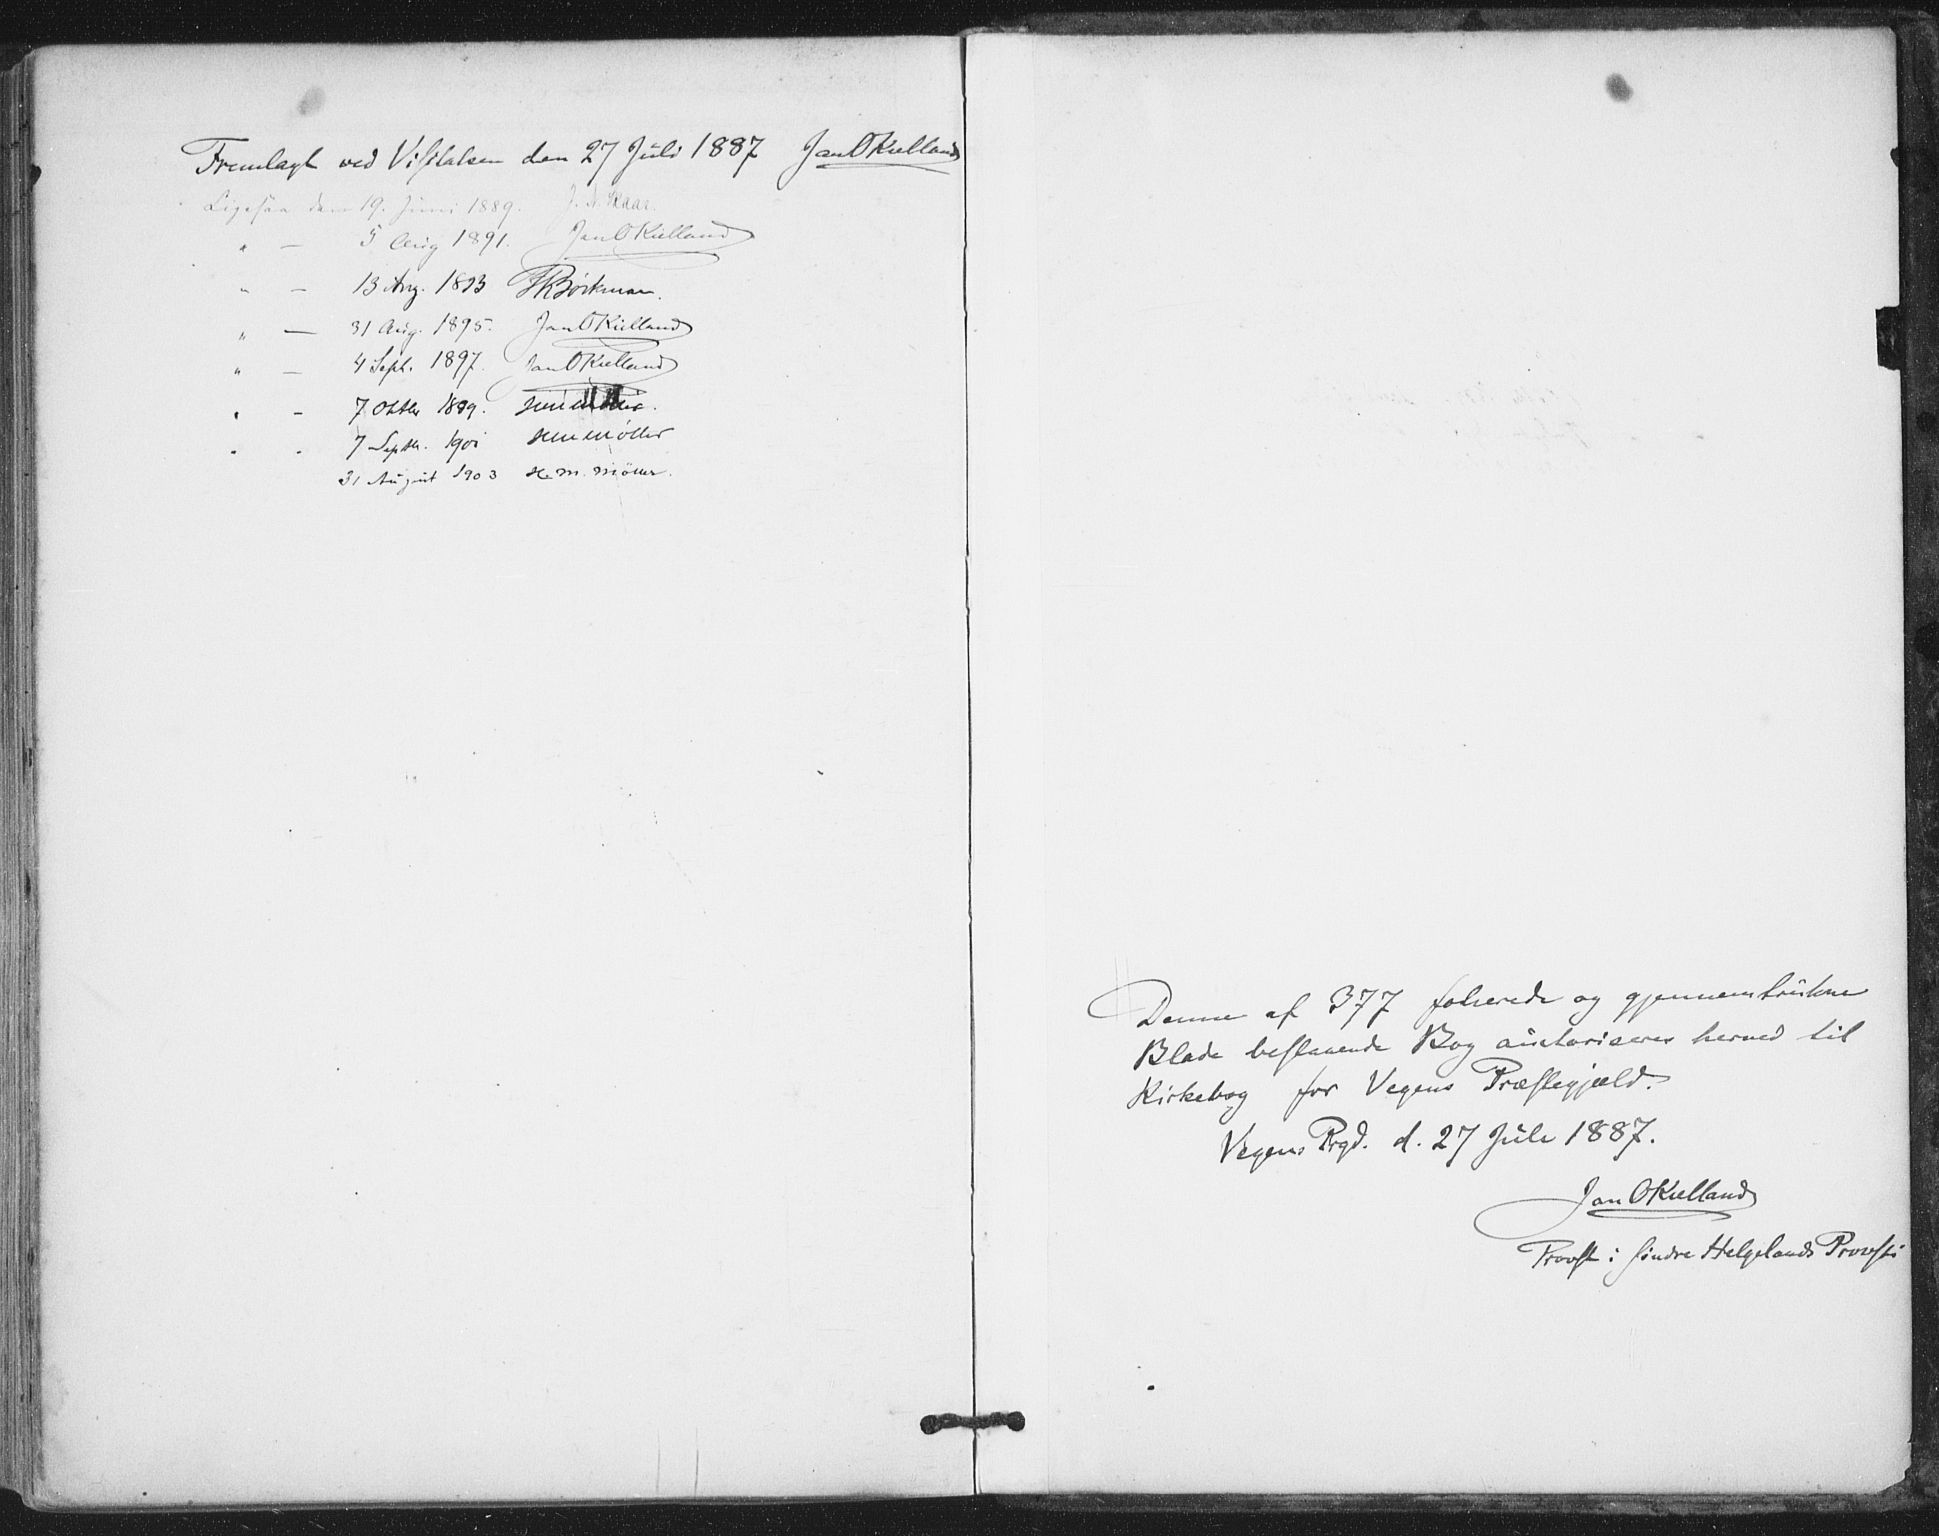 Fremlagt ved Visitatsen den 27 Juli 1887 Jan O Kielland
Ligesaa den 19. Juni 1889. J. N. Skaar.
" — 5 Aug 1891. Jan O Kielland
" — 13 Aug. 1893 Bøckman.
" — 31 Aug. 1895. Jan O Kielland
" — 4 Sept. 1897. Jan O Kielland
" - 7 Oktbr 1899.
" " 7 Septbr. 1901 H M Møller
31 August 1903 H. M. Møller.
Denne af 377 folierede og gjennemtrukne
Blade bestaaende Bog autoriseres herved til
Kirkebog for Vegens Præstegjæld.
Vegens Prgd. d. 27 Juli 1887.
Jan O Kielland
Provst i søndre Helgelands Provsti